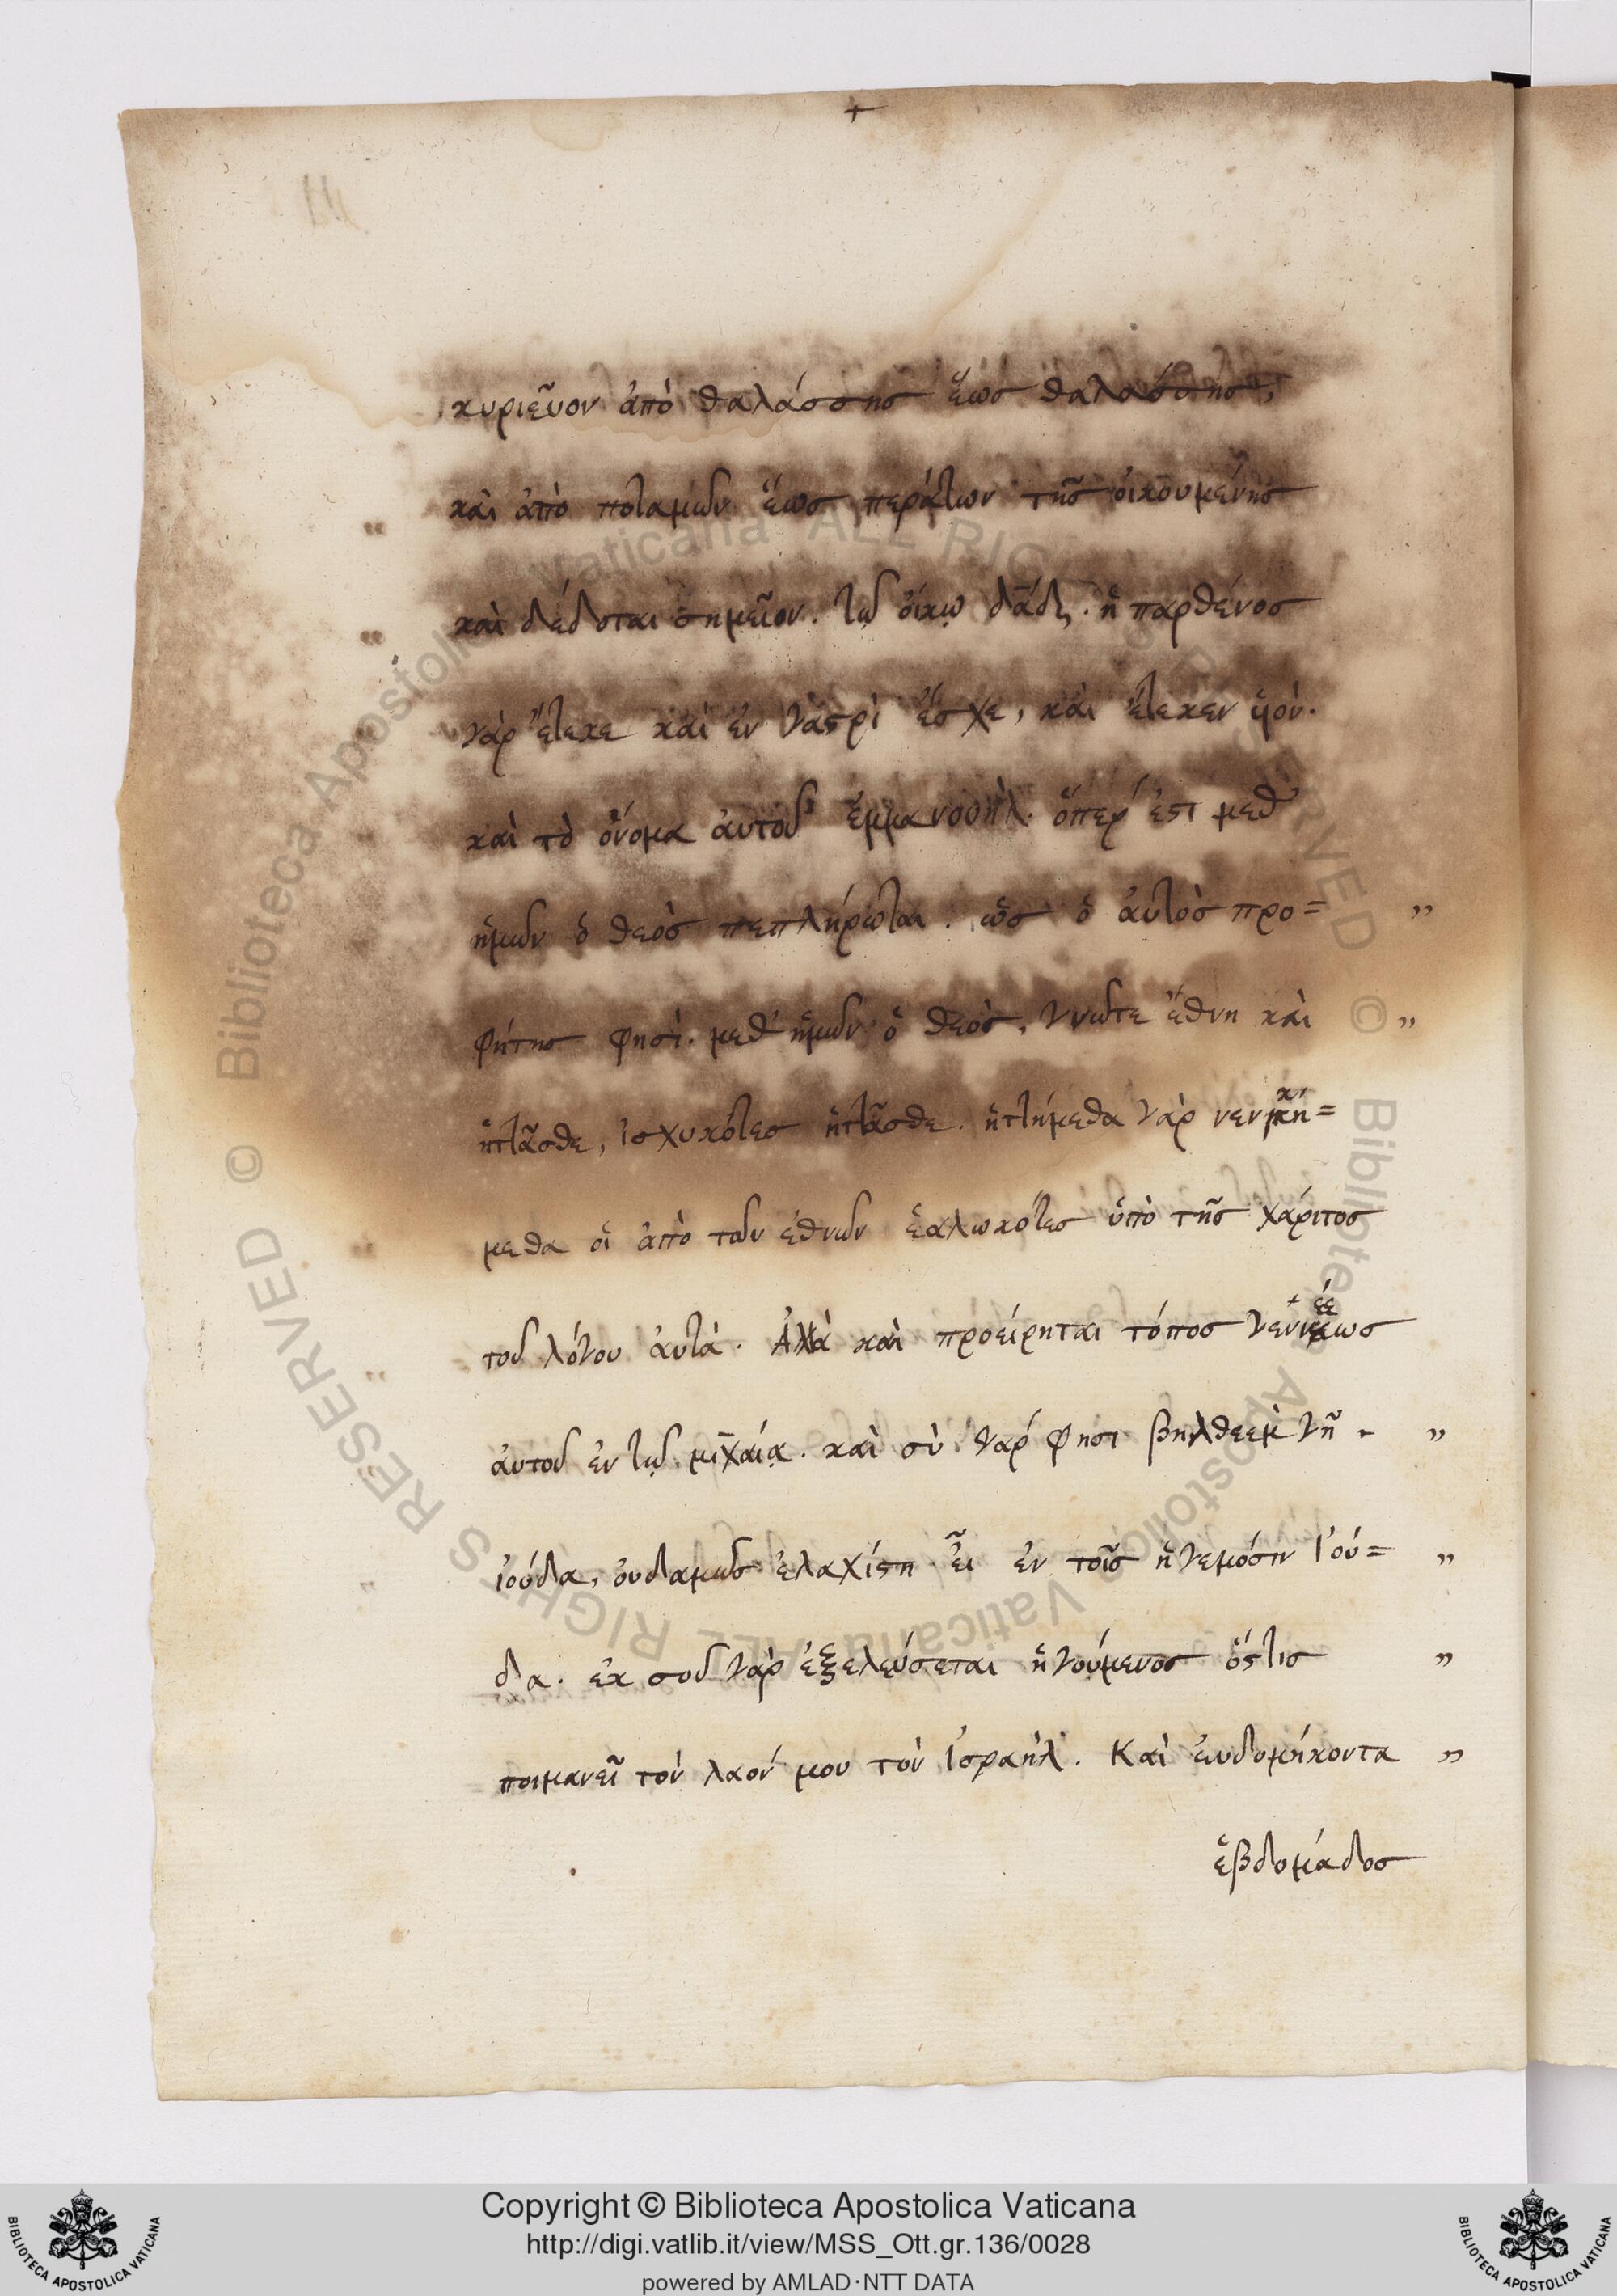 +
κυριεῦον ἀπὸ θαλάσσης ἕως θαλάσσης,
καὶ ἀπὸ ποταμῶν ἕως περάτων τῆς οἰκουμένης
καὶ δέδοται σημεῖον. τῷ οἴκῳ δᾱδ. ἡ παρθένος
γὰρ ἔτεκε καὶ ἐν γαστρὶ ἔσχε, καὶ ἔτεκεν υἱόν.
καὶ τὸ ὄνομα αὐτοῦ ἐμμανουήλ. ὅπερ ἐστι μεθ'
ἡμῶν ὁ θεὸς πεπλήρωται. ὡς ὁ αὐτὸς προ= ”
φήτης φησί. μεθ' ἡμῶν ὁ θεός, γνῶτε ἔθνη καὶ ”
ἡττᾶσθε, ἰσχυκότες ἡττᾶσθε. ἡττήμεθα γὰρ νενικη=
μεθα οἱ ἀπὸ τῶν ἐθνῶν ἑαλωκότες ὑπὸ τῆς χάριτος
τοῦ λόγου αὐτὰ. Ἀλλὰ καὶ προείρηται τόπος γεννέσεως
αὐτοῦ ἐν τῷ μιχαίᾳ. καὶ σὺ γάρ φησι βηλθεὲμ γῆ - ”
ἰούδα, οὐδαμῶς ἐλαχίστη εἶ ἐν τοῖς ἡγεμόσιν Ἰού= ”
δα. ἐκ σοῦ γὰρ ἐξελεύσεται ἡγούμενος ὅστις ”
ποιμανεῖ τὸν λαόν μου τὸν Ἰσραήλ. Καὶ ἑυδομήκοντα ”
ἑβδομάδος
Copyright © Biblioteca Apostolica Vaticana
http://digi.vatlib.it/view/MSS_Ott.gr.136/0028
powered by AMLAD·NTT DATA
BIBLIOTECA APOSTOLICA VATICANA
BIBLIOTECA APOSTOLICA VATICANA
© Biblioteca Apostolica Vaticana ALL RIGHTS RESERVED © Biblioteca Apostolica Vaticana ALL RIGHTS RESERVED